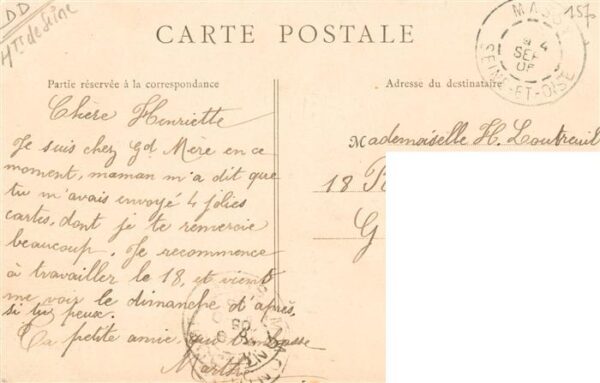 DD
Hts de Seine
157
CARTE POSTALE
SEINE-ET-OISE
4
SEP
Partie réservée à la correspondance
Adresse du destinataire
Chère Henriette
Je suis chez Gd Mère en ce
moment, maman m'a dit que
tu m'avais envoyé 4 jolies
cartes, dont je te remercie
beaucoup. Je recommence
à travailler le 18, et vient
me voir le dimanche d'après,
si tu peux.
Ta petite amie qui t'embrasse
Marthe
Mademoiselle H. Loutreuil
18
G